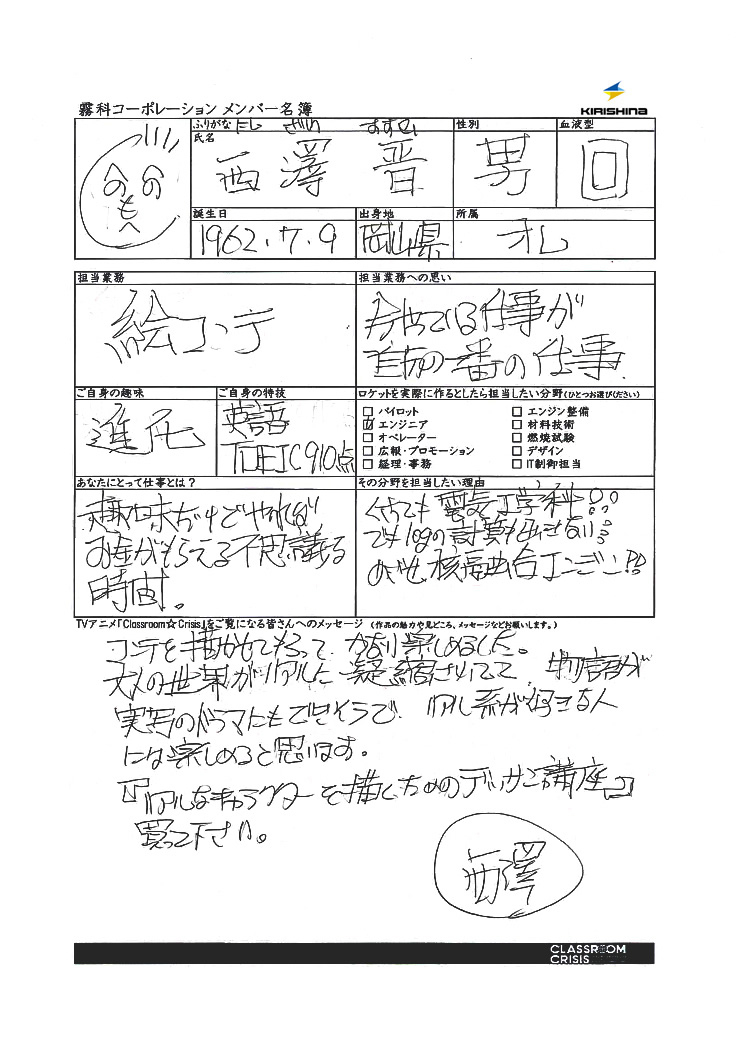 霧科コーポレーション メンバー名簿
KIRISHINA
ふりがな にし ざわ すすむ
氏名
西澤 晋
性別
男
血液型
回
へのへのもへ
誕生日
1962.7.9
出身地
岡山県
所属
オレ
担当業務
絵コンテ
担当業務への思い
今やっている仕事が
自分の一番の仕事
ご自身の趣味
ご自身の特技
英語
TOEIC910点
ロケットを実際に作るとしたら担当したい分野(ひとつお選びください)
パイロット
エンジニア
オペレーター
広報・プロモーション
経理・事務
エンジン整備
材料技術
燃焼試験
デザイン
IT制御担当
あなたにとって仕事とは?
趣味だけでやれば
お金がもらえる不思議な
時間。
その分野を担当したい理由
くさっても電気工学科!!
でもlogの計算も出来ない!!
めざせ核融合エンジン!!
TVアニメ「Classroom☆Crisis」をご覧になる皆さんへのメッセージ (作品の魅力や見どころ、メッセージなどお願いします。)
コンテを描かせてもらって、かなり楽しめました。
大人の世界がリアルに凝縮されてて、物語が
実写のドラマにもできそうで、リアル系が好きな人
には楽しめると思います。
『リアルなキャラクターを描くためのデッサン講座』
買って下さい。
西澤
CLASSROOM
CRISIS